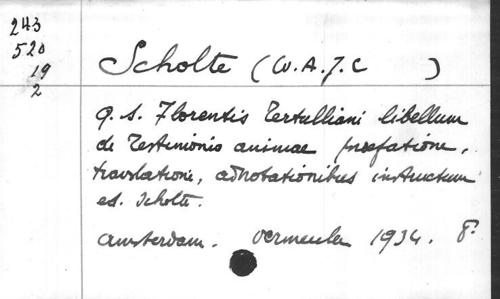 243
520
19
2
Scholte (W.A.J.C )
Q. S. Florentis Tertulliani libellum
de Testimonio animae praefatione,
translatione, adnotationibus instructum
ed. Scholte.
Amsterdam. Vermeulen 1934. 8°.